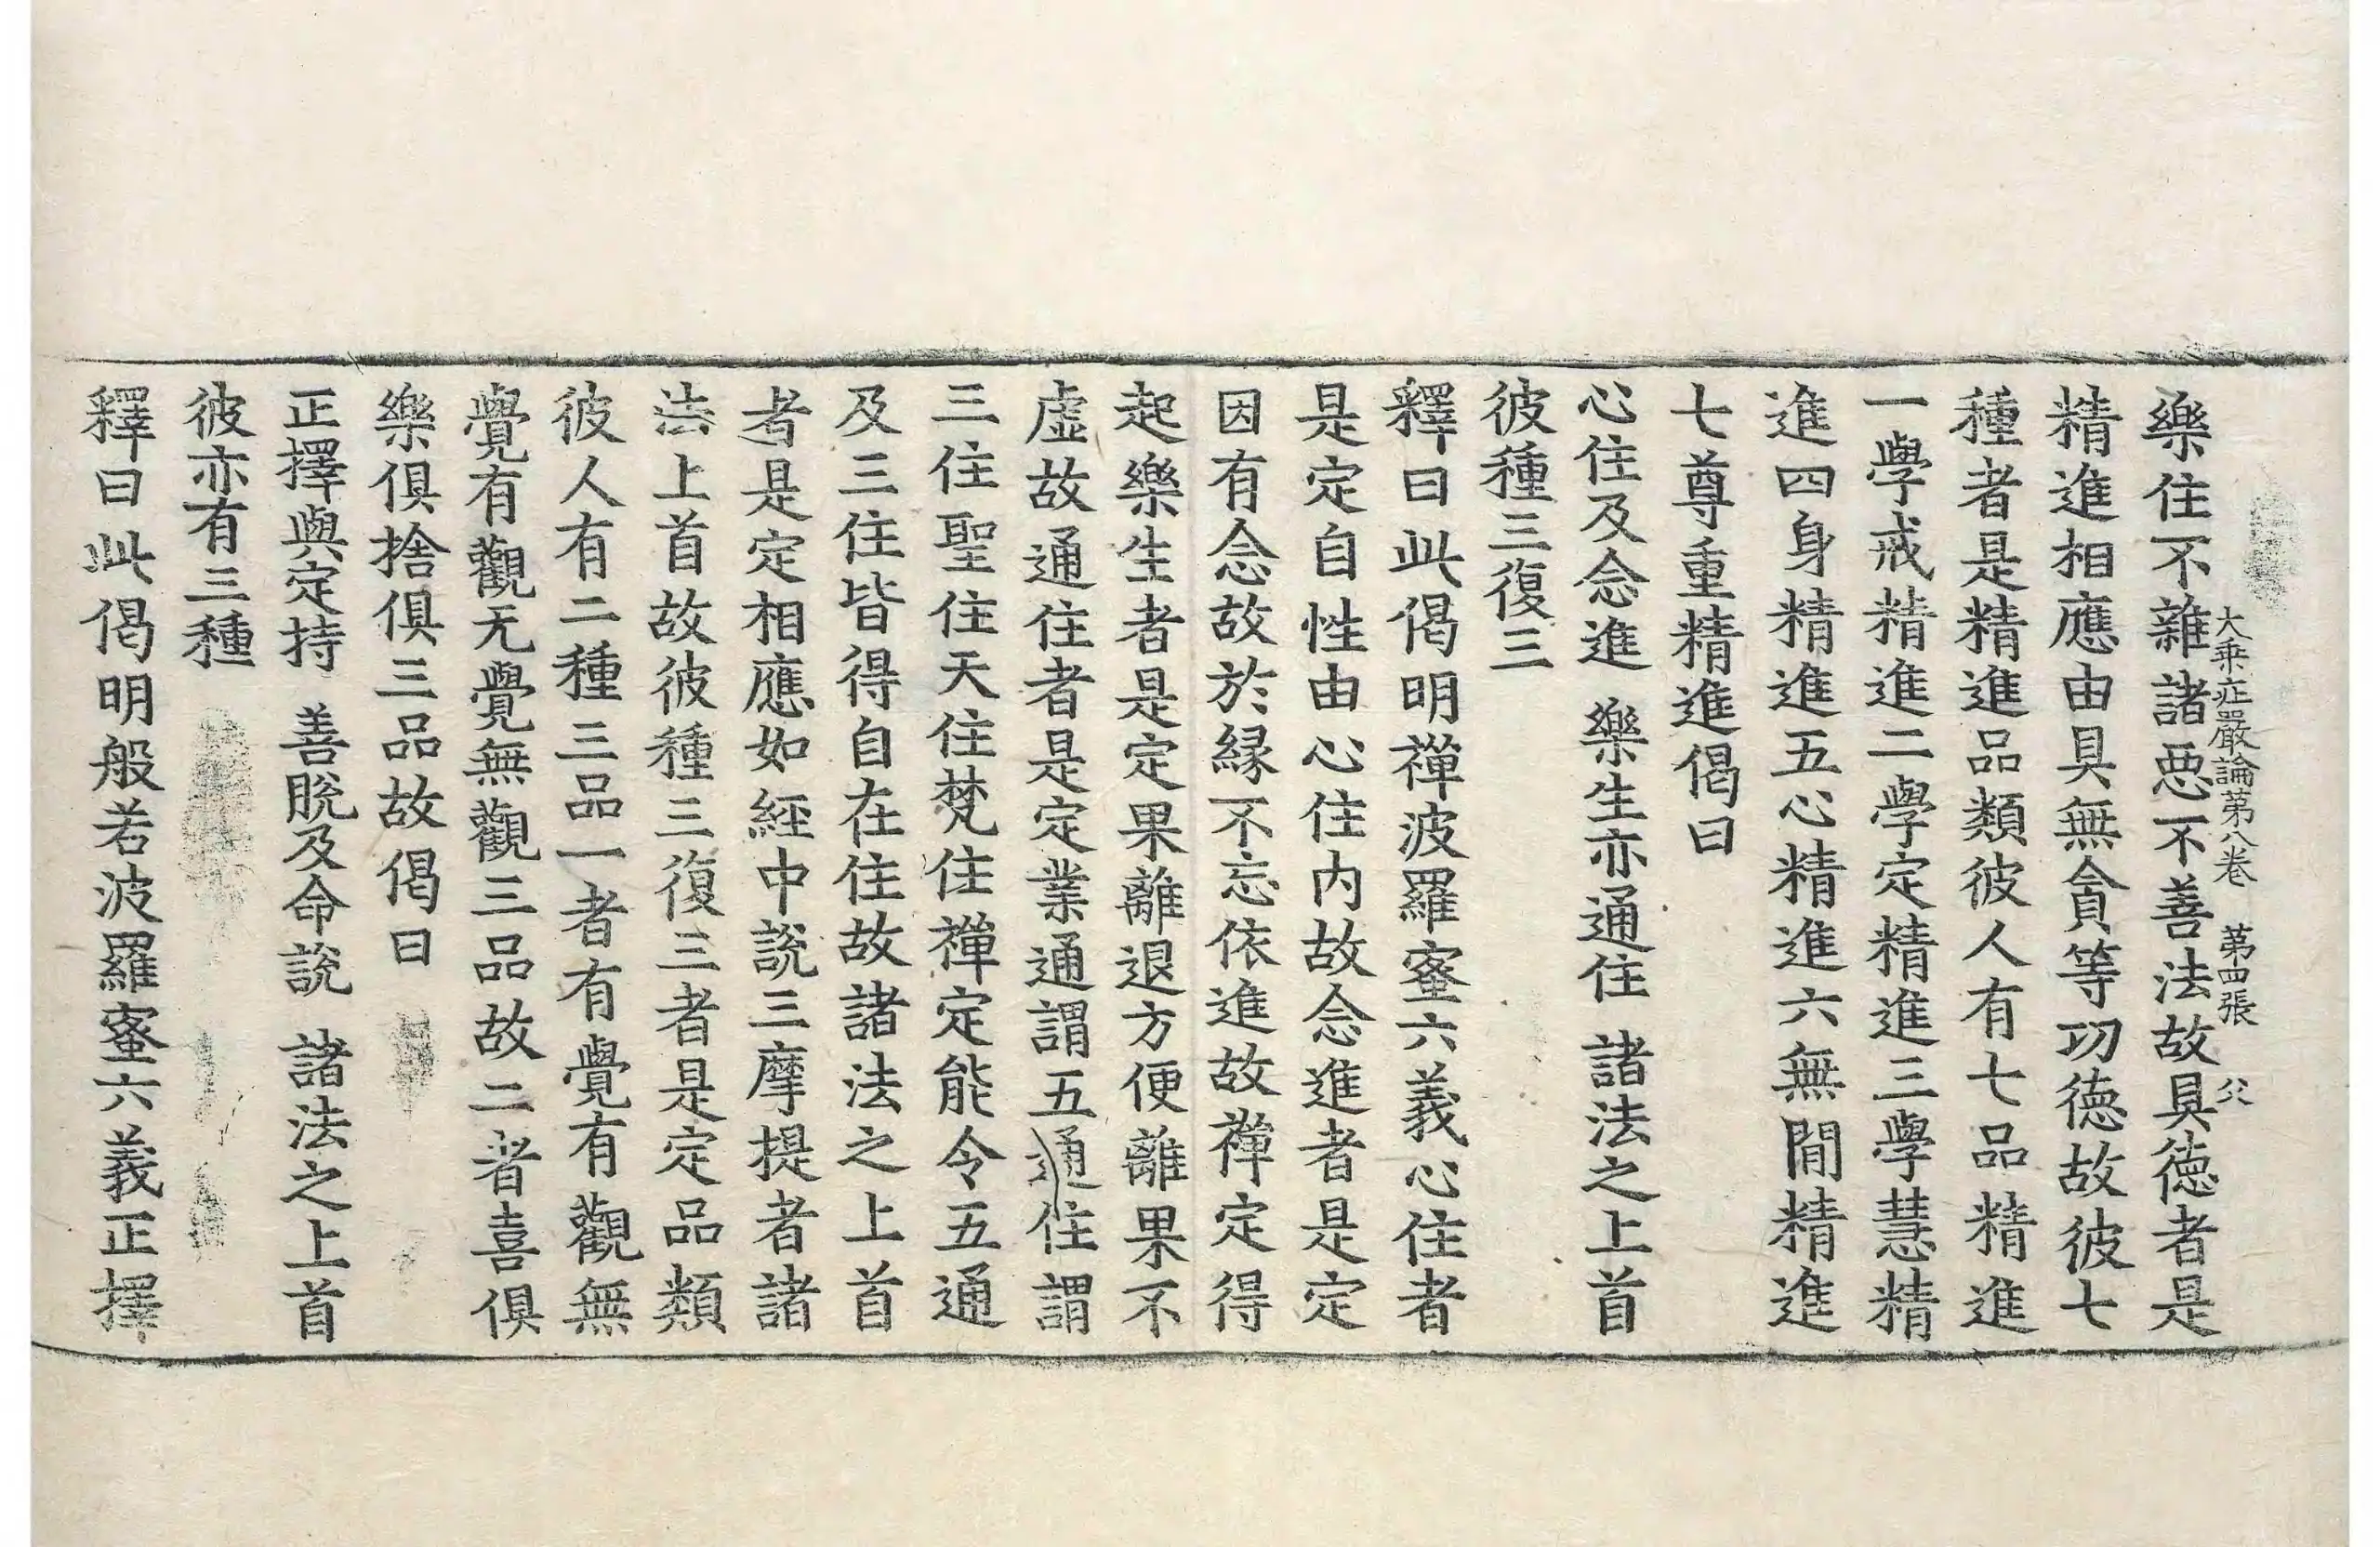 大乗庄嚴論第八巻　第四張　公
樂住不雜諸惡不善法故具徳者是
精進相應由具無貪等功徳故彼七
種者是精進品類彼人有七品精進
一學戒精進二學定精進三學慧精
進四身精進五心精進六無間精進
七尊重精進偈曰
心住及念進　樂生亦通住　諸法之上首
彼種三復三
釋曰此偈明禪波羅蜜六義心住者
是定自性由心住内故念進者是定
因有念故於縁不忘依進故禪定得
起樂生者是定果離退方便離果不
虚故通住者是定業通謂五通住謂
三住聖住天住梵住禪定能令五通
及三住皆得自在住故諸法之上首
者是定相應如經中説三摩提者諸
法上首故彼種三復三者是定品類
彼人有二種三品一者有覺有觀無
覺有觀无覺無觀三品故二者喜俱
樂俱捨俱三品故偈曰
正擇與定持　善脱及命説　諸法之上首
彼亦有三種
釋曰此偈明般若波羅蜜六義正擇